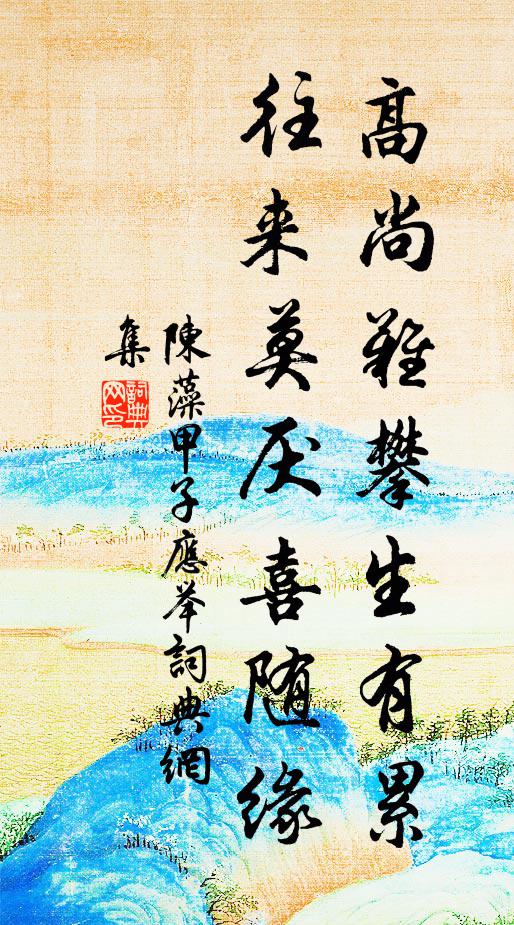 高尚難攀生有累
往来莫厌喜随缘
陳藻甲子應举詞典網
集
詞典
网印